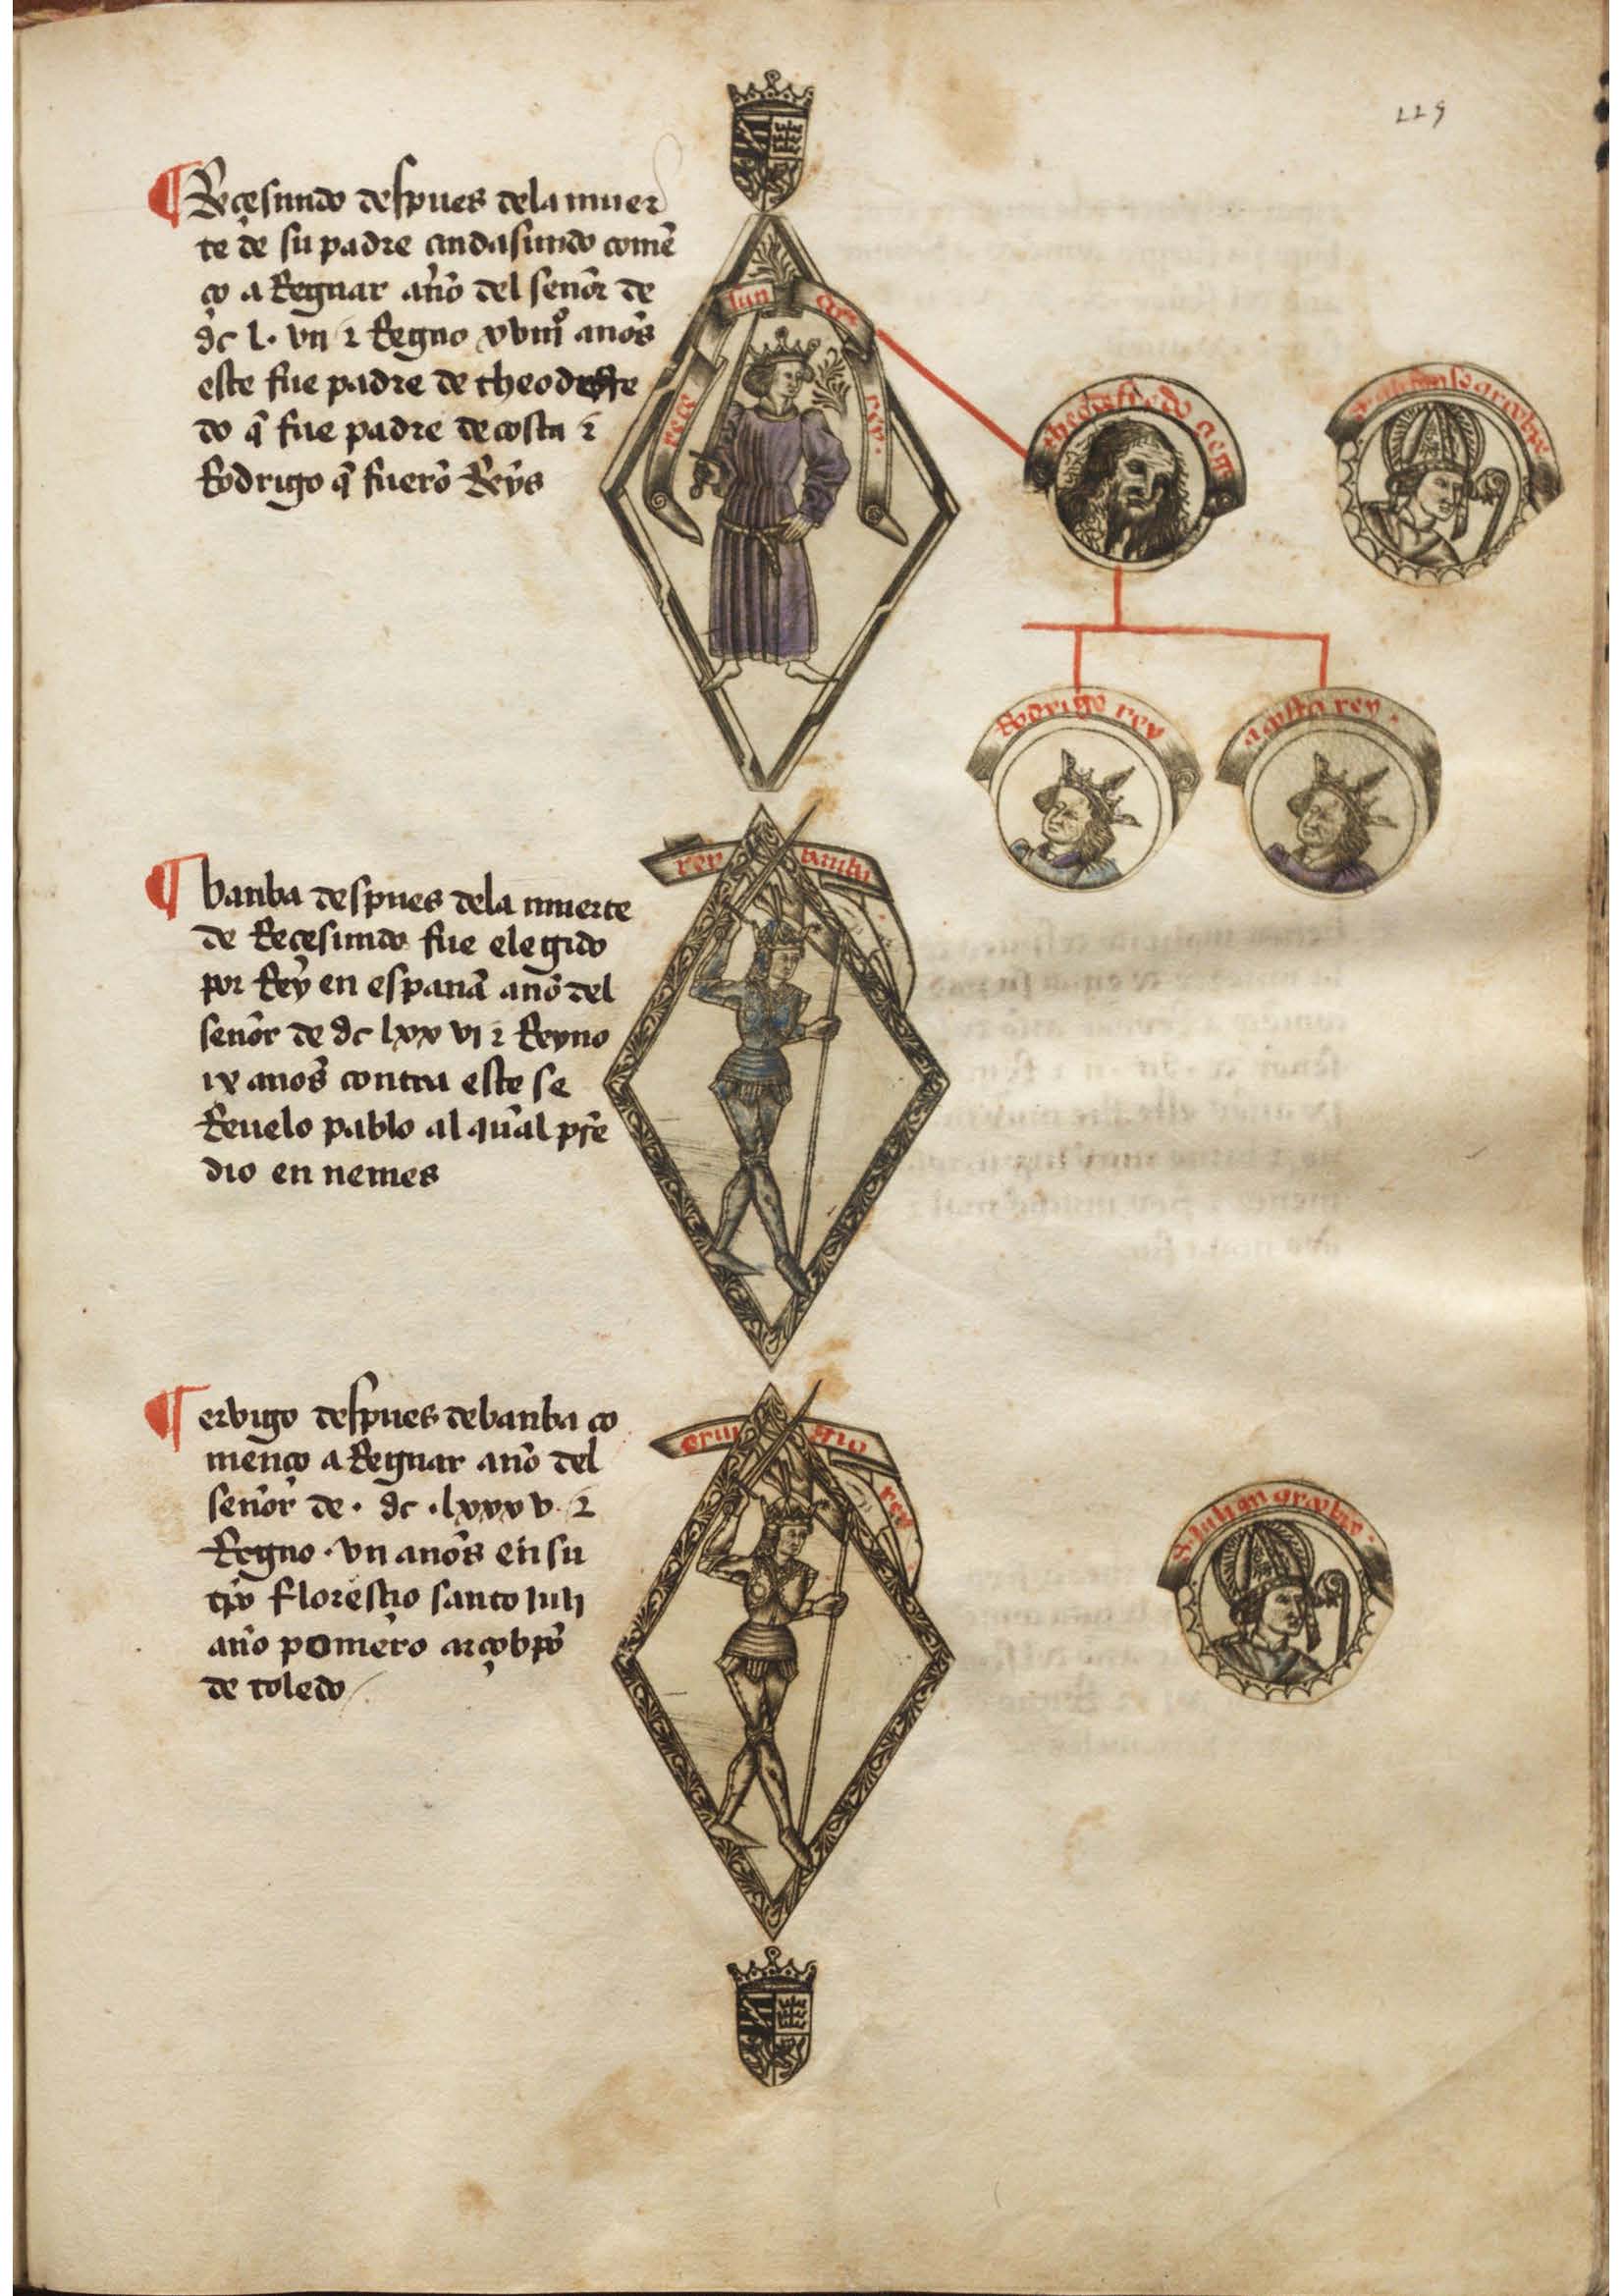 119
¶ Reçesundo despues dela muer
te de su padre cindasundo comē
ço a Regnar año del señor de
dc l. vii ⁊ Regno xviiiº años
este fue padre de theodeffre
do q̄ fue padre de costa ⁊
Rodrigo q̄ fuerō Reys
reçe sun rey
theodefredo
arçobpo
Rodrigo rey
acosta rey.
¶ banba despues dela muerte
de Reçesundo fue elegido
por Rey en españa año del
señor de dc lxx vi ⁊ Reyno
ix años contra este se
Reuelo pablo al qual pre
dio en nemes
rey banba
¶ ervigo despues de banba co
menço a Regnar año del
señor de . dc . lxxx v . ⁊
Regno . vii años en su
tpo floresçio santo iuli
ano pomero arçobpo
de toledo
erui gio rey
S. iulian arçobpo.